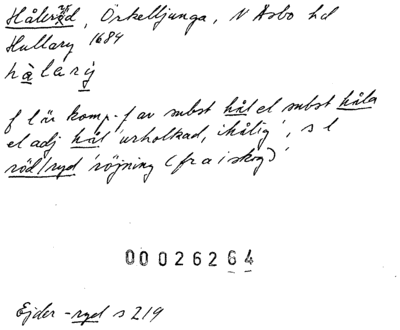 Håleröd, Örkelljunga, N Åsbo hd
Hullary 1684
hålarÿ
f l är komp.-f av subst hål el subst håla
el adj hål 'urholkad, ihålig', s l
röd/ryd 'röjning (fr a i skog)'
00026264
Ejder -ryd s 219